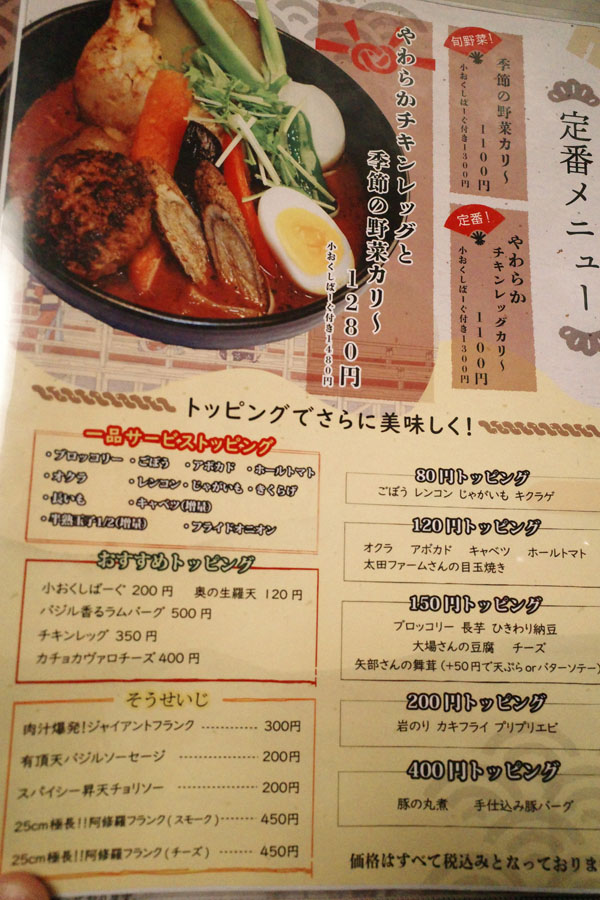 定番メニュー
旬野菜!
季節の野菜カリ〜
1100円
小おくしばーぐ付き1300円
定番!
やわらか
チキンレッグカリ〜
1100円
小おくしばーぐ付き1300円
やわらかチキンレッグと
季節の野菜カリ〜
1280円
小おくしばーぐ付き1480円
トッピングでさらに美味しく!
一品サービストッピング
・ブロッコリー ・ごぼう ・アボカド ・ホールトマト
・オクラ ・レンコン ・じゃがいも ・きくらげ
・長いも ・キャベツ(増量)
・半熟玉子1/2(増量) ・フライドオニオン
おすすめトッピング
小おくしばーぐ 200円 奥の生羅天 120円
バジル香るラムバーグ 500円
チキンレッグ 350円
カチョカヴァロチーズ 400円
そうせいじ
肉汁爆発!ジャイアントフランク 300円
有頂天バジルソーセージ 200円
スパイシー昇天チョリソー 200円
25cm極長!!阿修羅フランク(スモーク) 450円
25cm極長!!阿修羅フランク(チーズ) 450円
80円トッピング
ごぼう レンコン じゃがいも キクラゲ
120円トッピング
オクラ アボカド キャベツ ホールトマト
太田ファームさんの目玉焼き
150円トッピング
ブロッコリー 長芋 ひきわり納豆
大場さんの豆腐 チーズ
矢部さんの舞茸(+50円で天ぷらorバターソテー)
200円トッピング
岩のり カキフライ プリプリエビ
400円トッピング
豚の丸煮 手仕込み豚バーグ
価格はすべて税込みとなっておりま